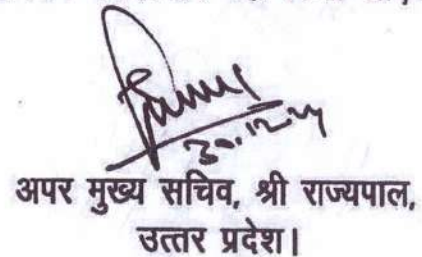 30.12.24
अपर मुख्य सचिव, श्री राज्यपाल,
उत्तर प्रदेश।